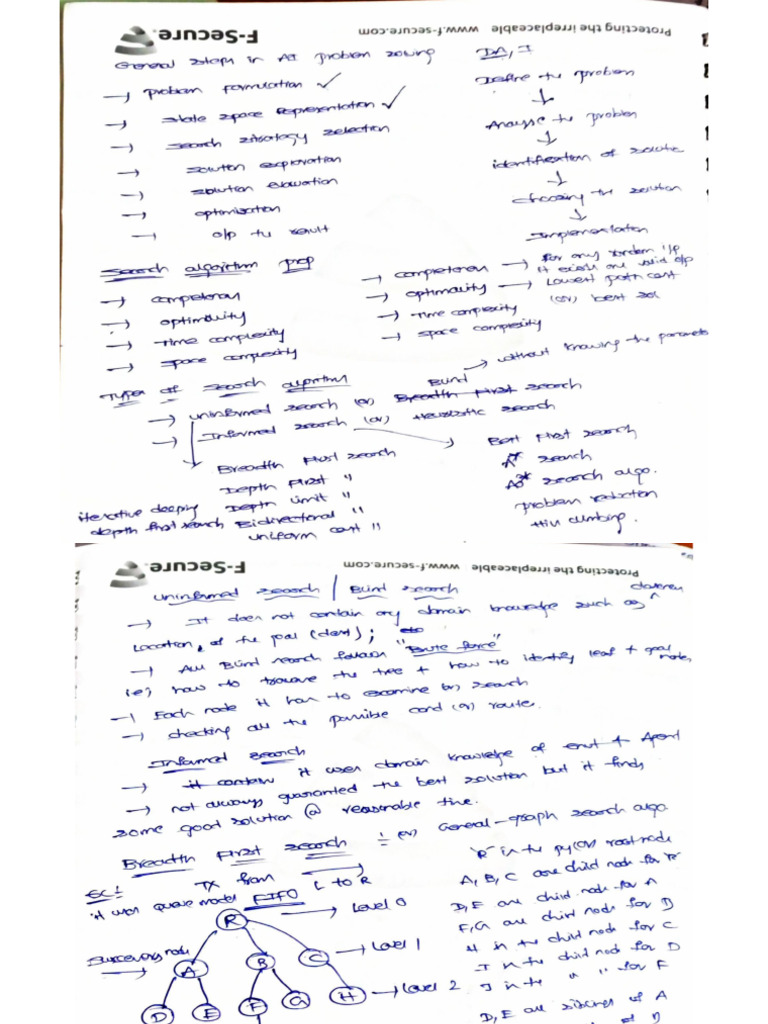 Protecting the irreplaceable www.f-secure.com F-Secure
General steps in AI problem solving
→ problem formulation ✓
→ state space representation ✓
→ search strategy selection
→ solution exploration
→ solution evaluation
→ optimisation
→ o/p the result
Define the problem
↓
Analyse the problem
↓
identification of solution
↓
choosing the solution
↓
Implementation
Search algorithm prop
→ competency
→ optimality
→ Time complexity
→ space complexity
→ competency → for any random i/p
it exists one valid o/p
→ optimality → Lowest path cost
(or) best sol
→ Time complexity
→ space complexity
Types of Search algorithm
Blind → without knowing the parameter
→ uninformed search (or) Breadth First search
→ Informed search (or) Heuristic search
Breadth First search
Depth First "
Depth Limit "
Bidirectional "
uniform cost "
iterative deeping
depth first search
Best First search
A* search
AO* search algo.
problem reduction
Hill climbing.
Protecting the irreplaceable www.f-secure.com F-Secure
uninformed search / Blind search
→ It does not contain any domain knowledge such as
Location, of the goal (dest);
→ All Blind search follows "Brute force"
(ie) how to traverse the tree + how to identify leaf + goal nodes,
→ Each node it has to examine (or) search
→ checking all the possible cond (or) route.
Informed search
→ it contain it uses domain knowledge of envt + Agent
→ not always guaranted the best solution but it finds
some good solution @ reasonable time.
Breadth First search :- (or) General-graph search algo
TX from L to R
it uses queue model FIFO
R → Level 0
successory node
A B C → Level 1
D E F G H → Level 2
"R" is the root node
A, B, C are child node for "R"
D, E are child node for A
F, G are child node for D
H is the child node for C
I is the child node for D
J is the " " for F
D, E are siblings of A